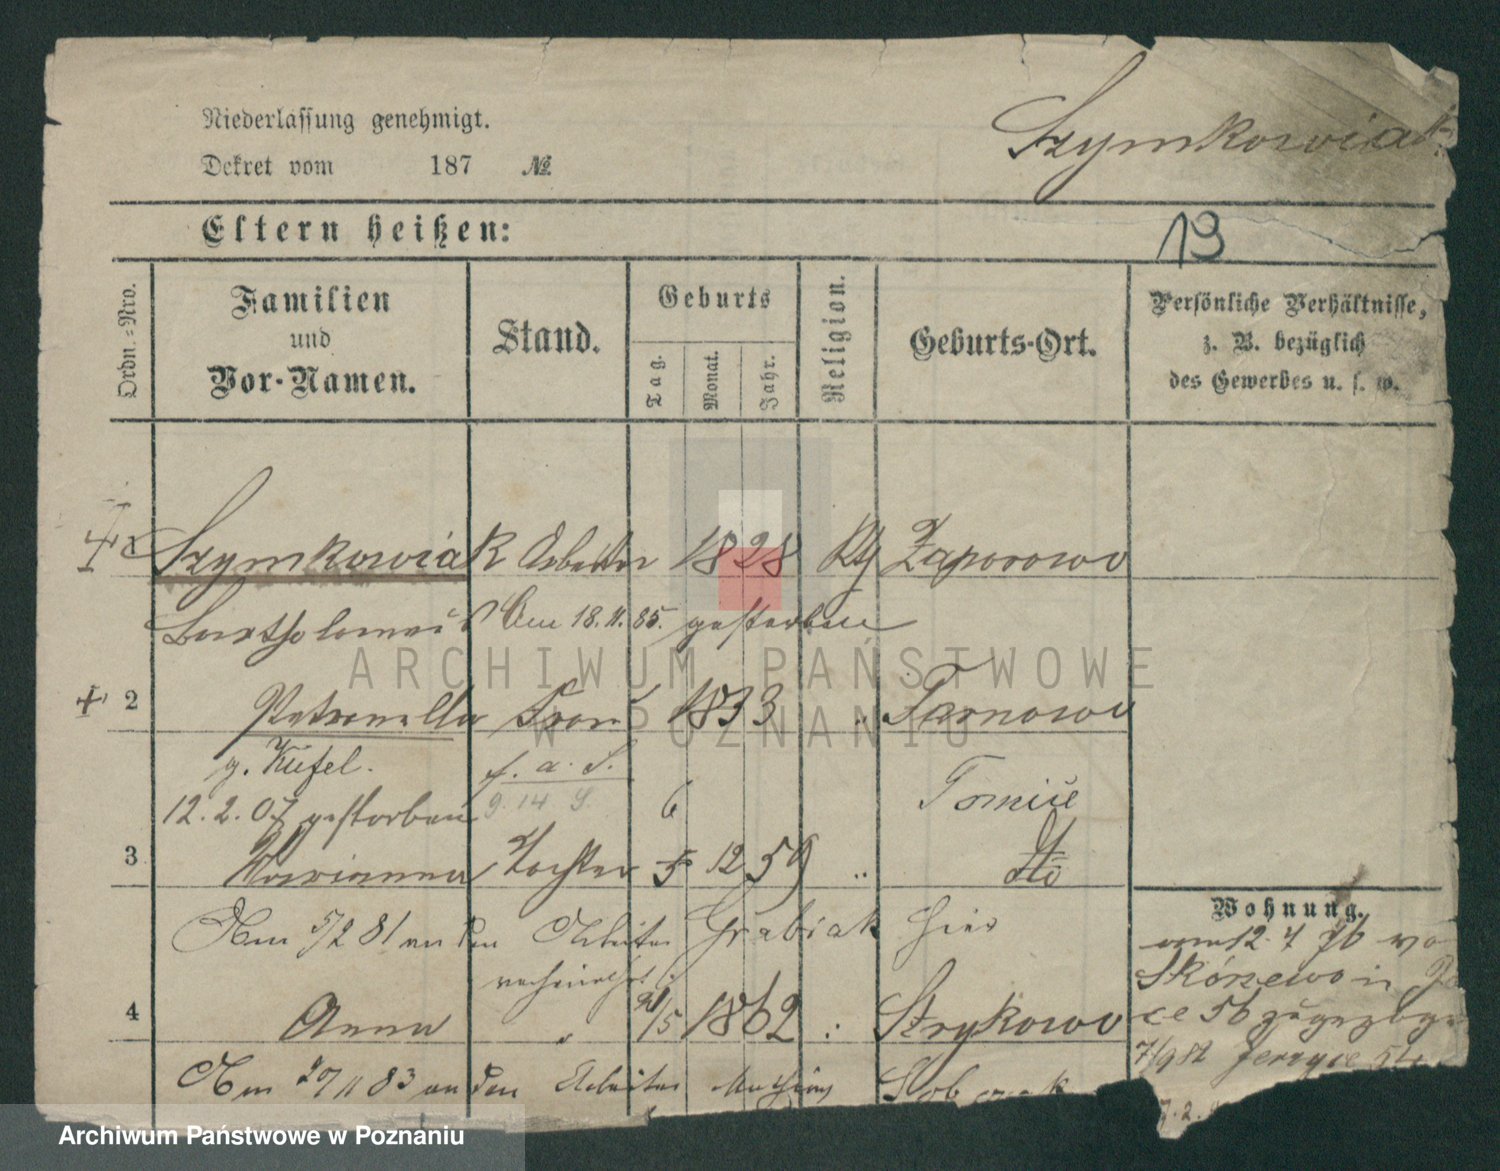 Szymkowiak
Niederlassung genehmigt.
Dekret vom 187 №
Eltern heißen:
13
Ordn.=Nro.
Familien
und
Vor-Namen.
Stand.
Geburts
Tag.
Monat.
Jahr.
Religion.
Geburts-Ort.
Persönliche Verhältnisse,
z. B. bezüglich
des Gewerbes u. s. w.
1 Szymkowiak Arbeiter 1828 Zaporowo
Bartholomäus Am 18.11.85. gestorben
2 Petronella Frau 1833 " Tarnowo
g. Kufel.
12.2.07 gestorben
6 Tomice
3 Marianna Tochter 5 12 59 " dto
Am 5/2 81 an den Arbeiter Grabiak hier
verheirathet
4 Anna " 21/5 1862 " Strykowo
Am 27/11 83 an den Arbeiter
Wohnung.
am 12. 7 76
Skórzewo in
56 zugezogen
7/9 82 Jerzyce
ARCHIWUM PAŃSTWOWE
W POZNANIU
Archiwum Państwowe w Poznaniu